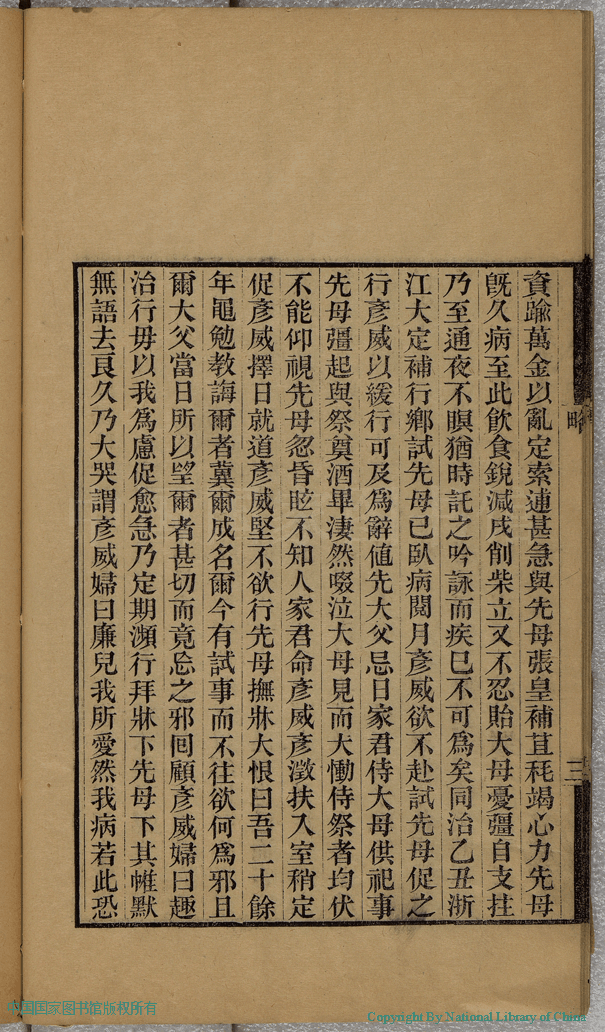 資踰萬金以亂定索逋甚急與先母張皇補苴秏竭心力先母
旣久病至此飮食銳減戌削柴立又不忍貽大母憂彊自支拄
乃至通夜不瞑猶時託之吟詠而疾已不可爲矣同治乙丑浙
江大定補行鄉試先母已臥病閱月彥威欲不赴試先母促之
行彥威以緩行可及爲辭値先大父忌日家君侍大母供祀事
先母彊起與祭奠酒畢淒然啜泣大母見而大慟侍祭者均伏
不能仰視先母忽昏眩不知人家君命彥威彥澂扶入室稍定
促彥威擇日就道彥威堅不欲行先母撫牀大恨曰吾二十餘
年黽勉敎誨爾者冀爾成名爾今有試事而不往欲何爲邪且
爾大父當日所以望爾者甚切而竟忘之邪囘顧彥威婦曰趣
治行毋以我爲慮促愈急乃定期瀕行拜牀下先母下其帷默
無語去良久乃大哭謂彥威婦曰廉兒我所愛然我病若此恐
略
三
中国国家图书馆版权所有
Copyright By National Library of China